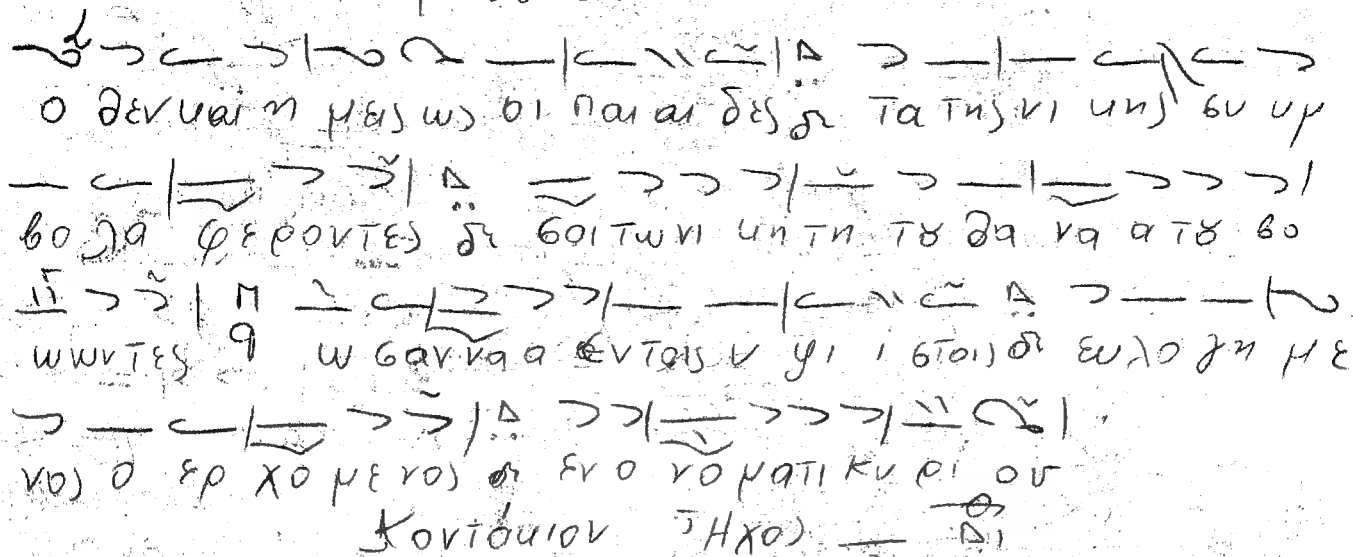 ο θεν και η μεις ως οι παι αι δες δι τα της νι κης συ υμ
βο λα φε ρο ντες δι σοι τω νι κη τη τȣ θα να α τȣ βο
ω ων τες ω σαν να α εν τοις υ ψι ι στοις δι ευ λο γη με
νος ο ερ χο με νος δι εν ο νο μα τι κυ ρι ου
Κοντάκιον Ἦχος